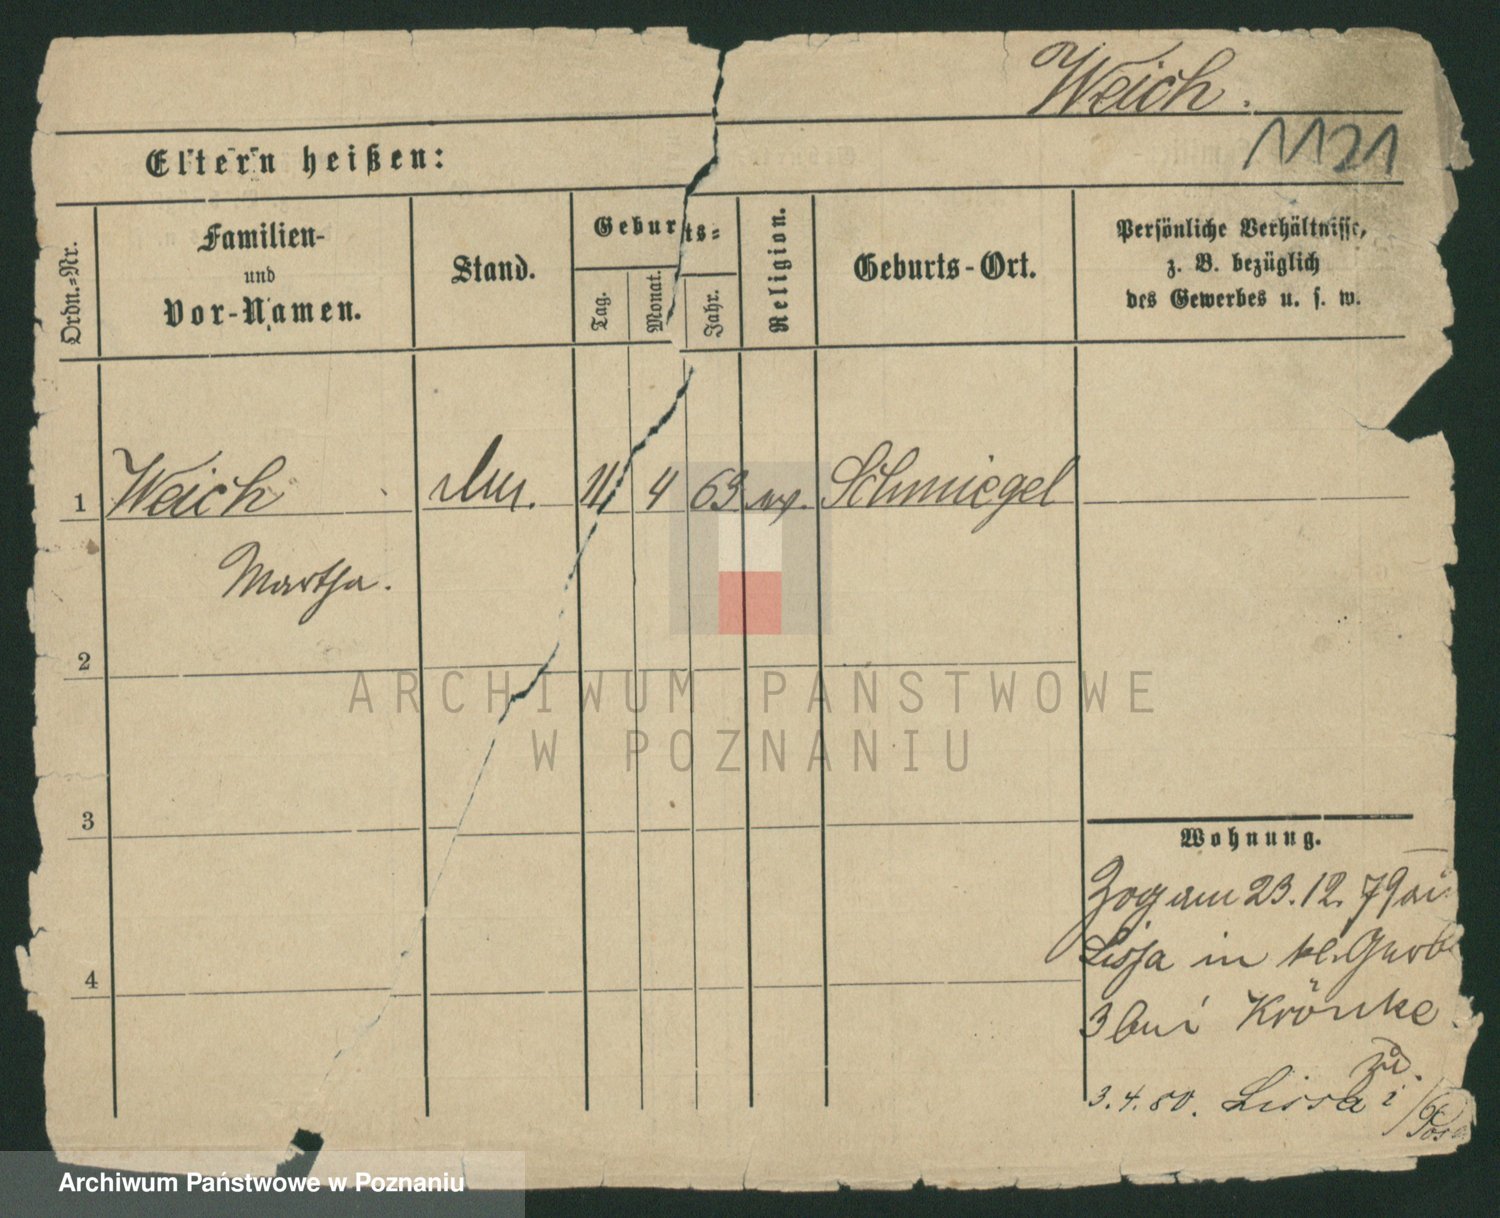 Weich.
1121
Eltern heißen:
Ordn.-Nr.
Familien-
und
Vor-Namen.
Stand.
Geburts-:
Tag.
Monat.
Jahr.
Religion.
Geburts-Ort.
Persönliche Verhältnisse,
z. B. bezüglich
des Gewerbes u. s. w.
1 Weich 11 4 63 Schmiegel
Martha.
2
3
4
Wohnung.
Zog am 23.12.79 au
Lissa in kl. Gerb
3 bei Krönke
3.4.80. Lissa
ARCHIWUM PAŃSTWOWE
W POZNANIU
Archiwum Państwowe w Poznaniu